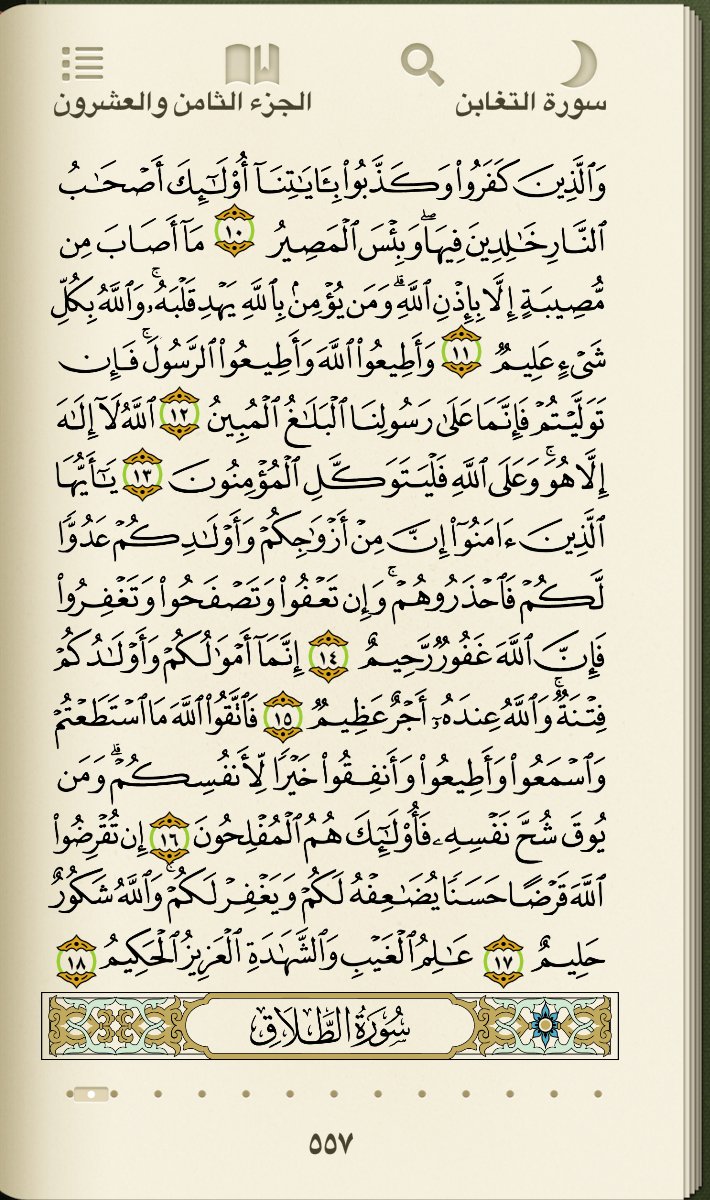 سورة التغابن
الجزء الثامن والعشرون
وَٱلَّذِينَ كَفَرُوا۟ وَكَذَّبُوا۟ بِـَٔايَـٰتِنَآ أُو۟لَـٰٓئِكَ أَصْحَـٰبُ
ٱلنَّارِ خَـٰلِدِينَ فِيهَا ۖ وَبِئْسَ ٱلْمَصِيرُ ١٠ مَآ أَصَابَ مِن
مُّصِيبَةٍ إِلَّا بِإِذْنِ ٱللَّهِ ۗ وَمَن يُؤْمِنۢ بِٱللَّهِ يَهْدِ قَلْبَهُۥ ۚ وَٱللَّهُ بِكُلِّ
شَىْءٍ عَلِيمٌ ١١ وَأَطِيعُوا۟ ٱللَّهَ وَأَطِيعُوا۟ ٱلرَّسُولَ ۚ فَإِن
تَوَلَّيْتُمْ فَإِنَّمَا عَلَىٰ رَسُولِنَا ٱلْبَلَـٰغُ ٱلْمُبِينُ ١٢ ٱللَّهُ لَآ إِلَـٰهَ
إِلَّا هُوَ ۚ وَعَلَى ٱللَّهِ فَلْيَتَوَكَّلِ ٱلْمُؤْمِنُونَ ١٣ يَـٰٓأَيُّهَا
ٱلَّذِينَ ءَامَنُوٓا۟ إِنَّ مِنْ أَزْوَٰجِكُمْ وَأَوْلَـٰدِكُمْ عَدُوًّا
لَّكُمْ فَٱحْذَرُوهُمْ ۚ وَإِن تَعْفُوا۟ وَتَصْفَحُوا۟ وَتَغْفِرُوا۟
فَإِنَّ ٱللَّهَ غَفُورٌ رَّحِيمٌ ١٤ إِنَّمَآ أَمْوَٰلُكُمْ وَأَوْلَـٰدُكُمْ
فِتْنَةٌ ۚ وَٱللَّهُ عِندَهُۥٓ أَجْرٌ عَظِيمٌ ١٥ فَٱتَّقُوا۟ ٱللَّهَ مَا ٱسْتَطَعْتُمْ
وَٱسْمَعُوا۟ وَأَطِيعُوا۟ وَأَنفِقُوا۟ خَيْرًا لِّأَنفُسِكُمْ ۗ وَمَن
يُوقَ شُحَّ نَفْسِهِۦ فَأُو۟لَـٰٓئِكَ هُمُ ٱلْمُفْلِحُونَ ١٦ إِن تُقْرِضُوا۟
ٱللَّهَ قَرْضًا حَسَنًا يُضَـٰعِفْهُ لَكُمْ وَيَغْفِرْ لَكُمْ ۚ وَٱللَّهُ شَكُورٌ
حَلِيمٌ ١٧ عَـٰلِمُ ٱلْغَيْبِ وَٱلشَّهَـٰدَةِ ٱلْعَزِيزُ ٱلْحَكِيمُ ١٨
سُورَةُ الطَّلَاقِ
٥٥٧